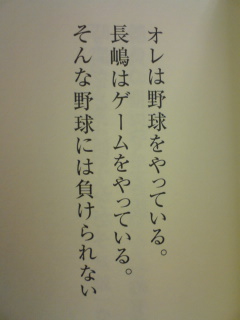 オレは野球をやっている。
長嶋はゲームをやっている。
そんな野球には負けられない